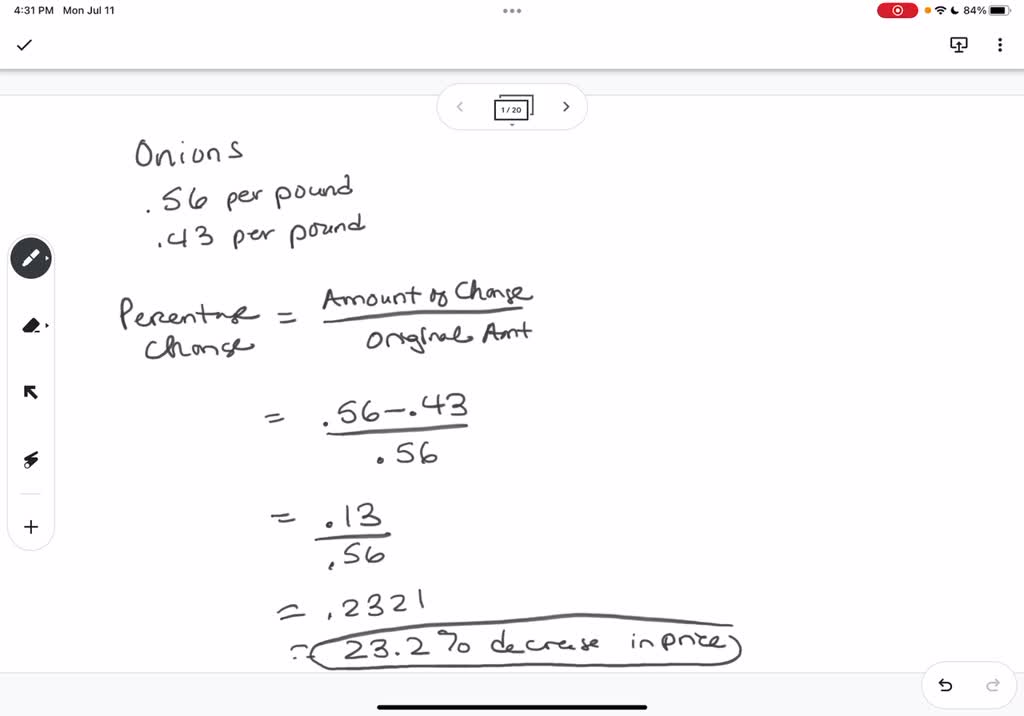 4:31 PM Mon Jul 11
84%
1 / 20
Onions
.56 per pound
.43 per pound
Percentage Change = Amount of Change / Original Amt
= .56-.43 / .56
= .13 / .56
= .2321
= 23.2% decrease in price